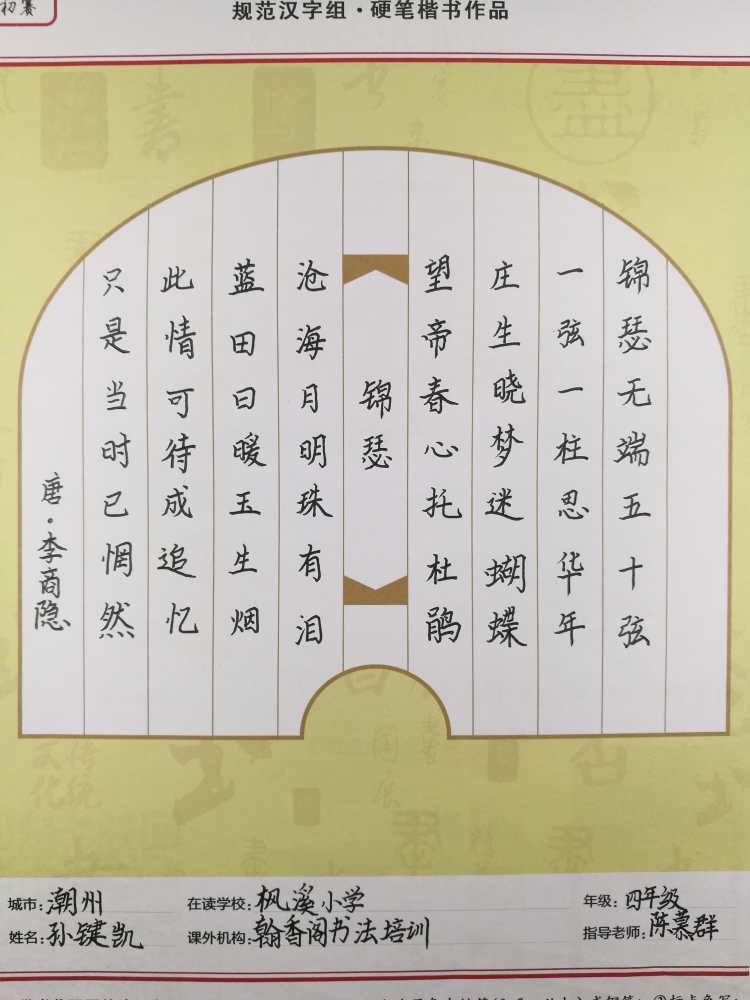 初赛
规范汉字组·硬笔楷书作品
锦瑟无端五十弦
一弦一柱思华年
庄生晓梦迷蝴蝶
望帝春心托杜鹃
锦瑟
沧海月明珠有泪
蓝田日暖玉生烟
此情可待成追忆
只是当时已惘然
唐·李商隐
城市:潮州
在读学校:枫溪小学
年级:四年级
姓名:孙键凯
课外机构:翰香阁书法培训
指导老师:陈慕群